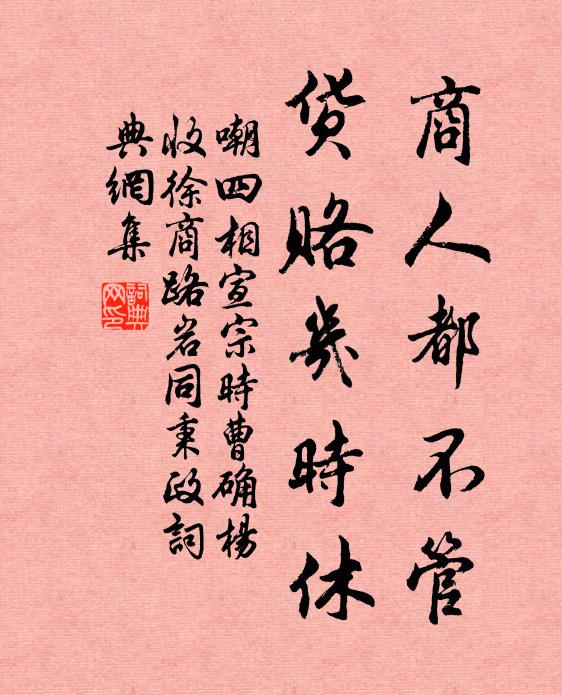 商人都不管
货赂几時休
嘲四相宣宗時曹确楊
收徐商路岩同秉政詞
典網集
詞典网印